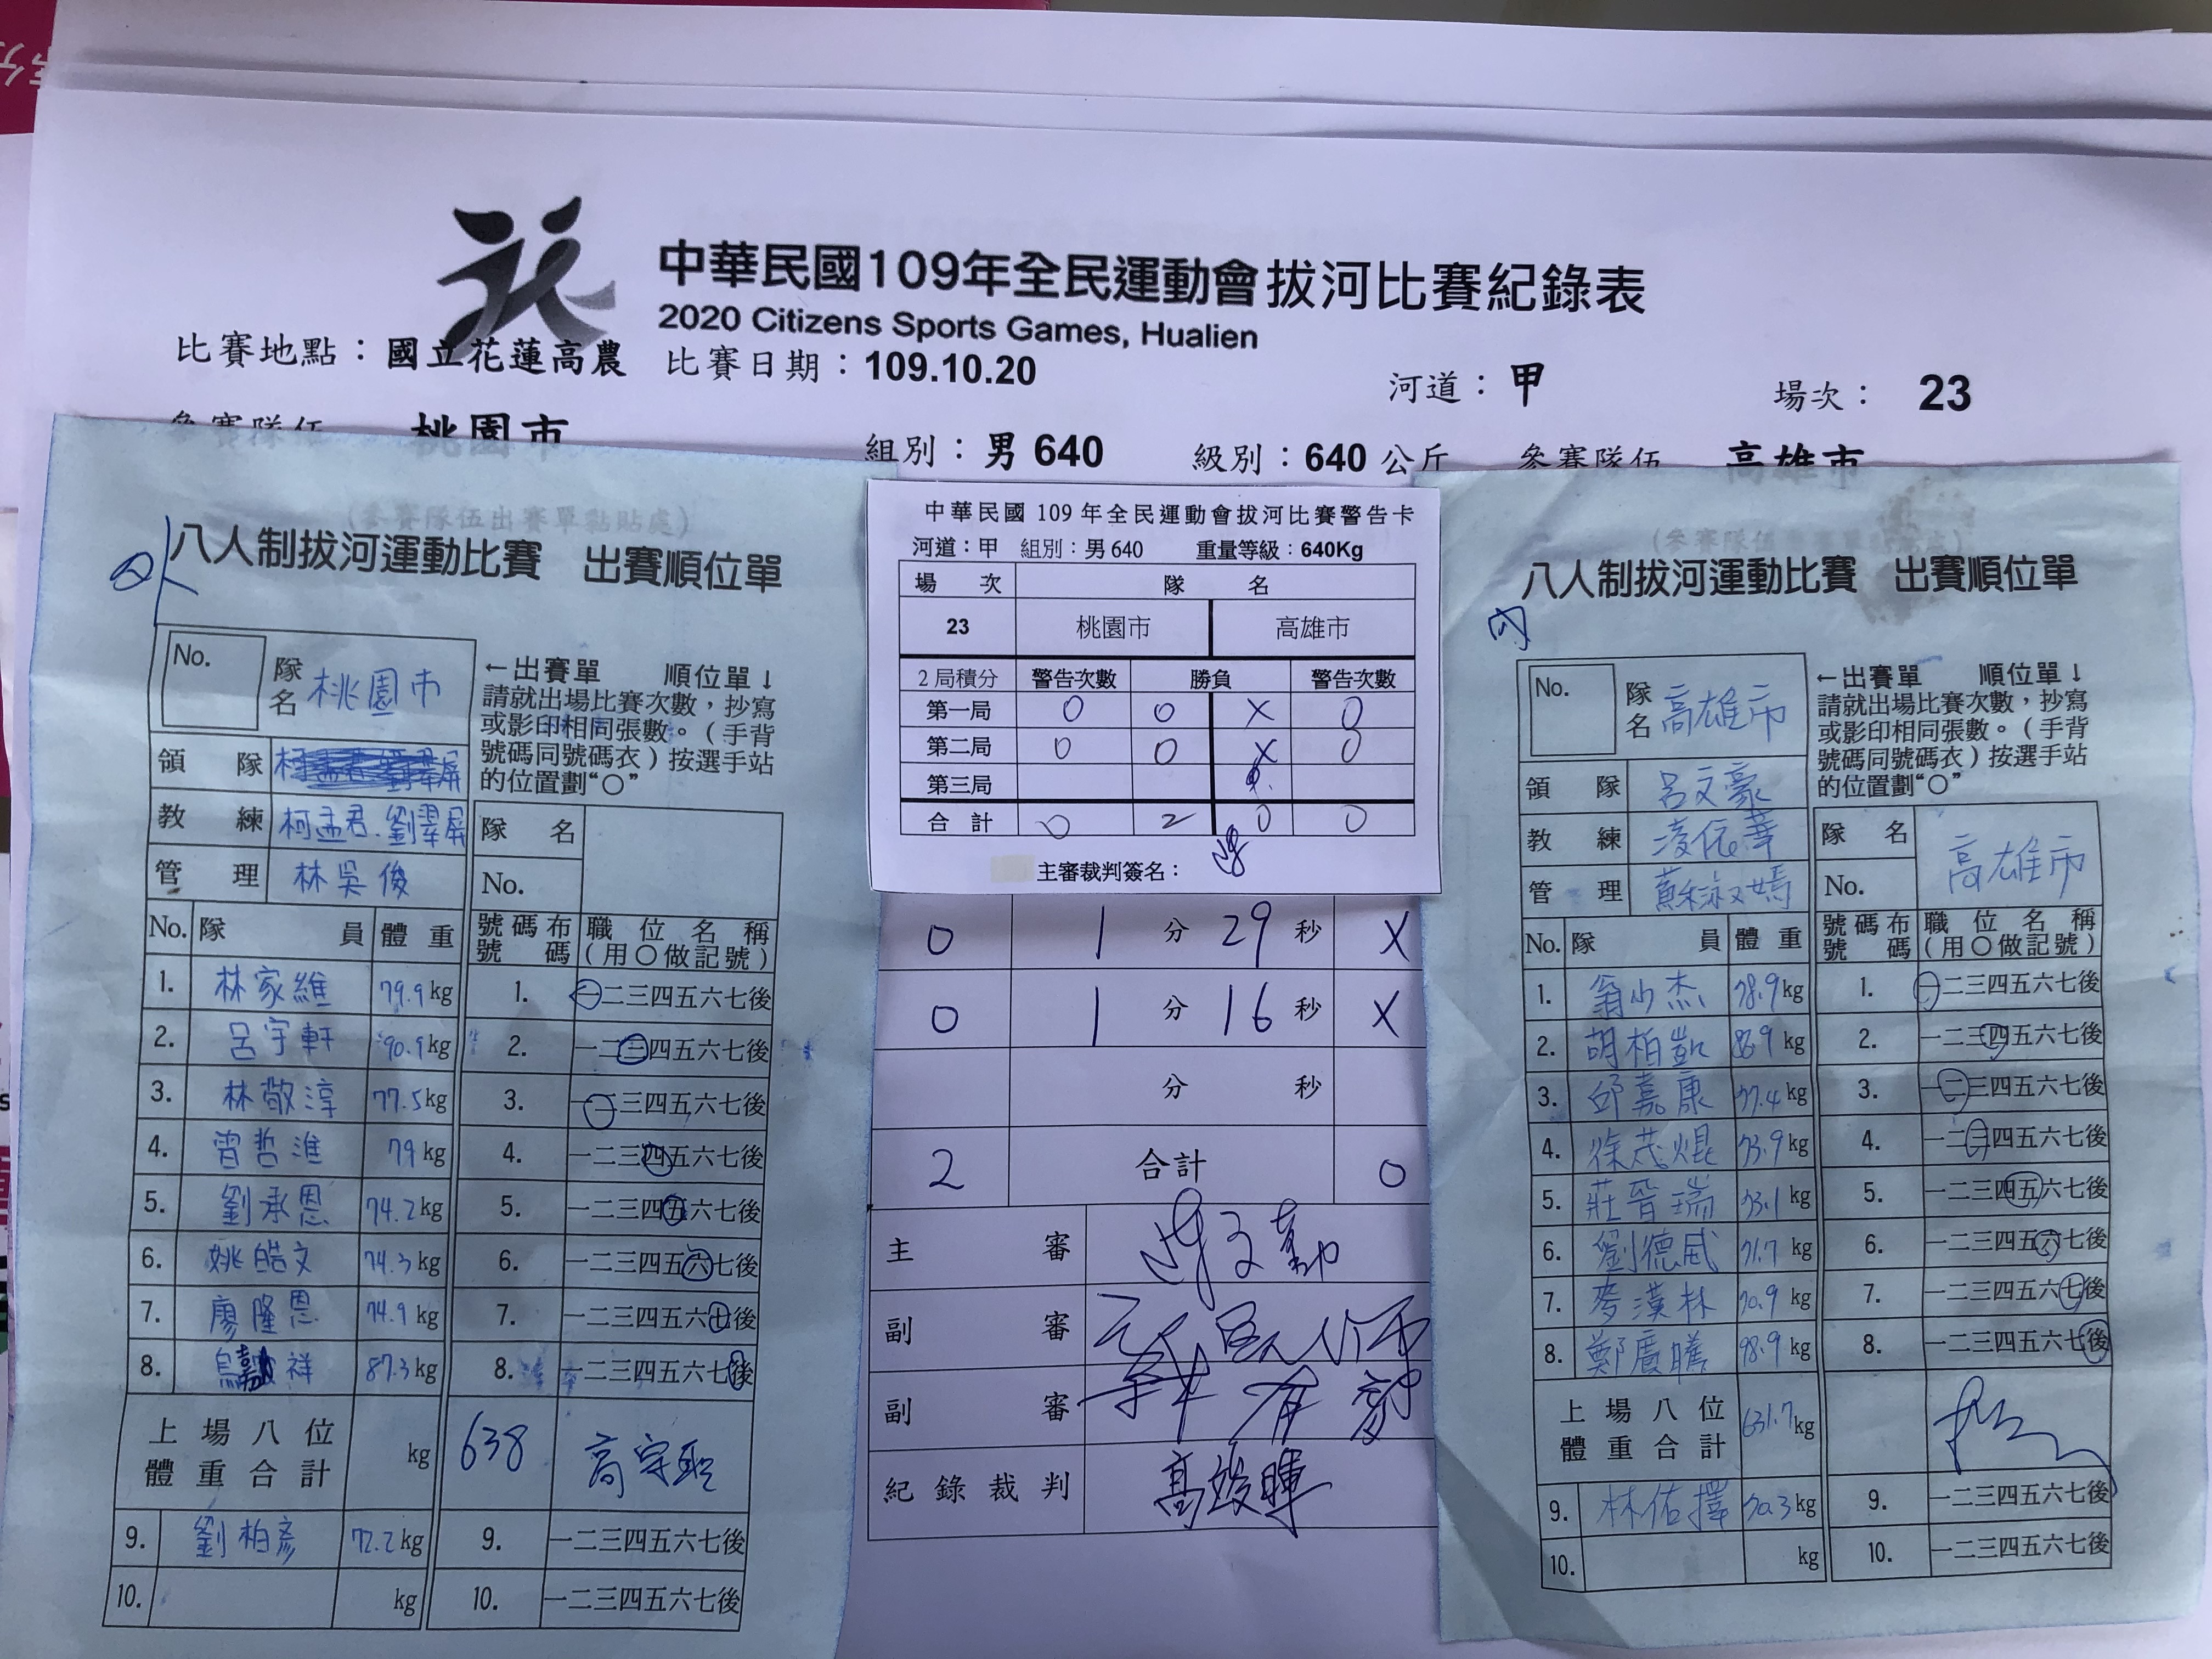 中華民國109年全民運動會拔河比賽紀錄表
2020 Citizens Sports Games, Hualien
比賽地點：國立花蓮高農 比賽日期：109.10.20 河道：甲 場次： 23
參賽隊伍 桃園市 組別：男 640 級別：640 公斤 參賽隊伍 高雄市
(參賽隊伍出賽單黏貼處)
八人制拔河運動比賽 出賽順位單
No. 隊名 桃園市
←出賽單 順位單↓
請就出場比賽次數，抄寫
或影印相同張數。（手背
號碼同號碼衣）按選手站
的位置劃“○”
領隊
教練 柯孟君.劉翠屏
管理 林吳俊
隊名
No.
No. 隊員 體重 號碼布號碼 職位名稱(用○做記號)
1. 林家維 79.9kg 1. 一二三四五六七後
2. 呂宇軒 90.9kg 2. 一二三四五六七後
3. 林敬淳 77.5kg 3. 一二三四五六七後
4. 曾哲淮 79kg 4. 一二三四五六七後
5. 劉承恩 74.2kg 5. 一二三四五六七後
6. 姚皓文 74.3kg 6. 一二三四五六七後
7. 廖隆恩 74.9kg 7. 一二三四五六七後
8. 嘉祥 87.3kg 8. 一二三四五六七後
上場八位體重合計 kg 638
9. 劉柏彥 72.2kg 9. 一二三四五六七後
10. kg 10. 一二三四五六七後
中華民國 109 年全民運動會拔河比賽警告卡
河道：甲 組別：男 640 重量等級：640Kg
場次 隊名
23 桃園市 高雄市
2 局積分 警告次數 勝負 警告次數
第一局 0 0 X 0
第二局 0 0 X 0
第三局
合計 0 2 0 0
主審裁判簽名：
0 1 分 29 秒 X
0 1 分 16 秒 X
分 秒
2 合計 0
主審
副審
副審
紀錄裁判 高竣暉
八人制拔河運動比賽 出賽順位單
No. 隊名 高雄市
←出賽單 順位單↓
請就出場比賽次數，抄寫
或影印相同張數。（手背
號碼同號碼衣）按選手站
的位置劃“○”
領隊 呂文豪
教練 凌依華
管理 蘇淑嫣
隊名 高雄市
No.
No. 隊員 體重 號碼布號碼 職位名稱(用○做記號)
1. 翁少杰 78.9kg 1. 一二三四五六七後
2. 胡柏凱 86.9kg 2. 一二三四五六七後
3. 邱嘉康 77.4kg 3. 一二三四五六七後
4. 徐茂焜 73.9kg 4. 一二三四五六七後
5. 莊晉瑞 73.1kg 5. 一二三四五六七後
6. 劉德威 71.7kg 6. 一二三四五六七後
7. 麥漢林 70.9kg 7. 一二三四五六七後
8. 鄭廣騰 98.9kg 8. 一二三四五六七後
上場八位體重合計 631.7kg
9. 林佑擇 70.3kg 9. 一二三四五六七後
10. kg 10. 一二三四五六七後